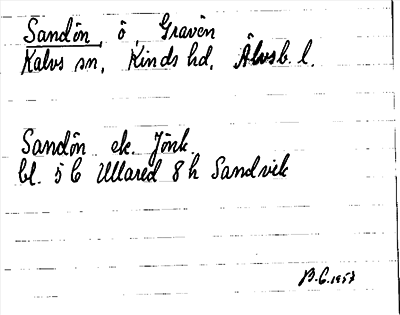 Sandön, ö, Graven
Kalvs sn, Kinds hd, Älvsb. l.
Sandön ek. Jönk.
bl. 5 C Ullared 8 h Sandvik
B.G. 1957